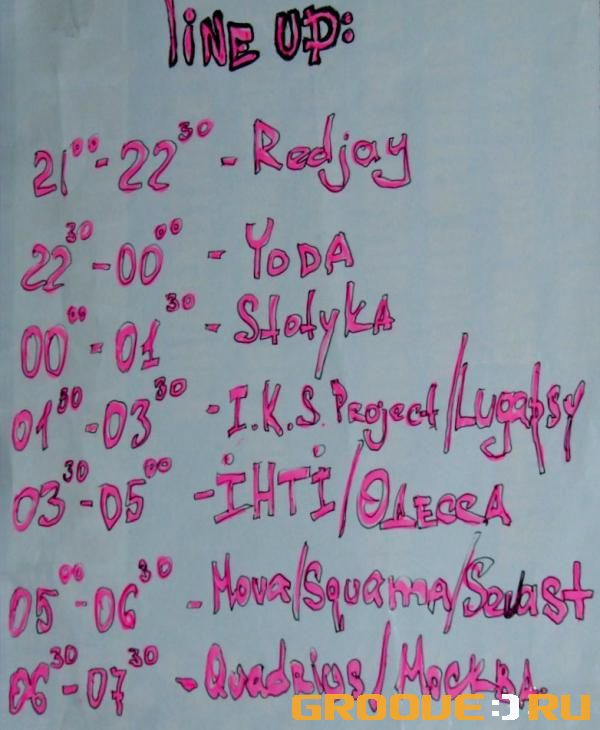 LINE UP:
21⁰⁰-22³⁰ - Redjay
22³⁰-00⁰⁰ - YODA
00⁰⁰-01³⁰ - Stotyka
01³⁰-03³⁰ - I.K.S. Project/Lugapsy
03³⁰-05⁰⁰ - ІНТІ/Одесса
05⁰⁰-06³⁰ - Mova/Squama/
06³⁰-07³⁰ - Quadrius/Москва.
GROOVE:)RU